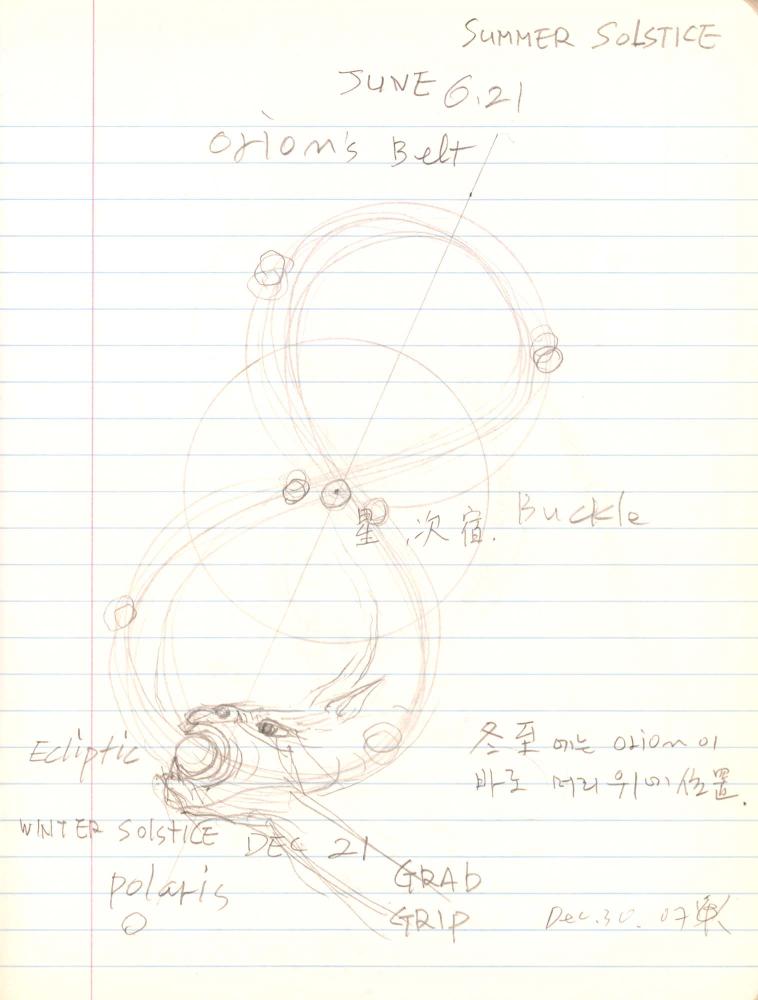 SUMMER SOLSTICE
JUNE 6.21
Orion's Belt
星,次宿. Buckle
Ecliptic
冬至에는 orion이
바로 머리 위에 位置.
WINTER SOLSTICE DEC 21
polaris
GRAb
GRIP
Dec.30. 07